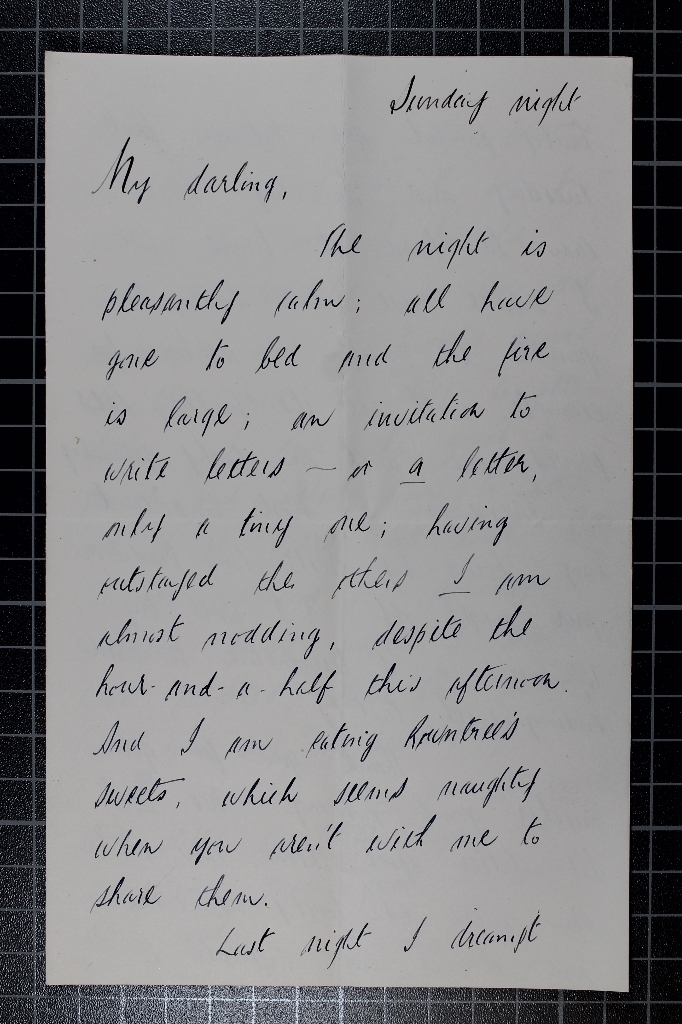 Sunday night
My darling,
The night is
pleasantly calm; all have
gone to bed and the fire
is large; an invitation to
write letters — or a letter,
only a tiny one; having
outstayed the others I am
almost nodding, despite the
hour-and-a-half this afternoon.
And I am eating Rowntree's
sweets, which seems naughty
when you aren't with me to
share them.
Last night I dreamt